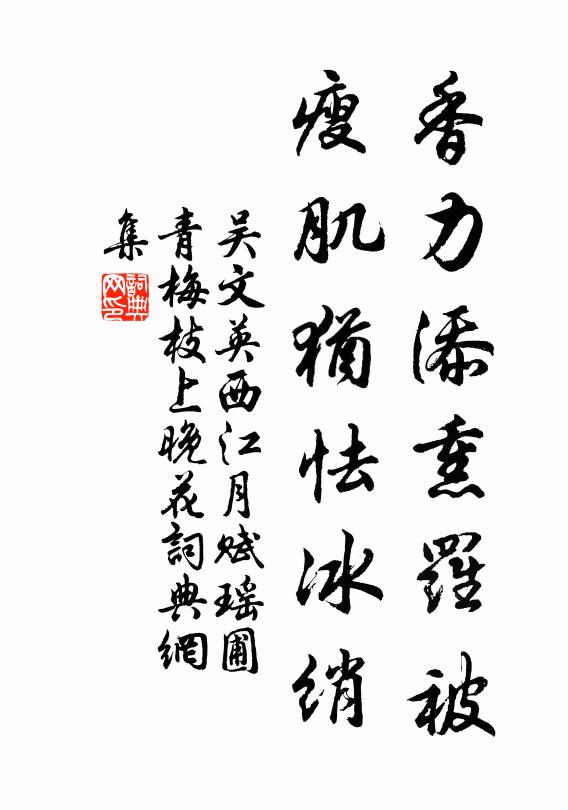 香力添熏羅被
瘦肌猶怯冰綃
吴文英西江月赋瑶圃
青梅枝上晚花詞典網
集
詞典
网印